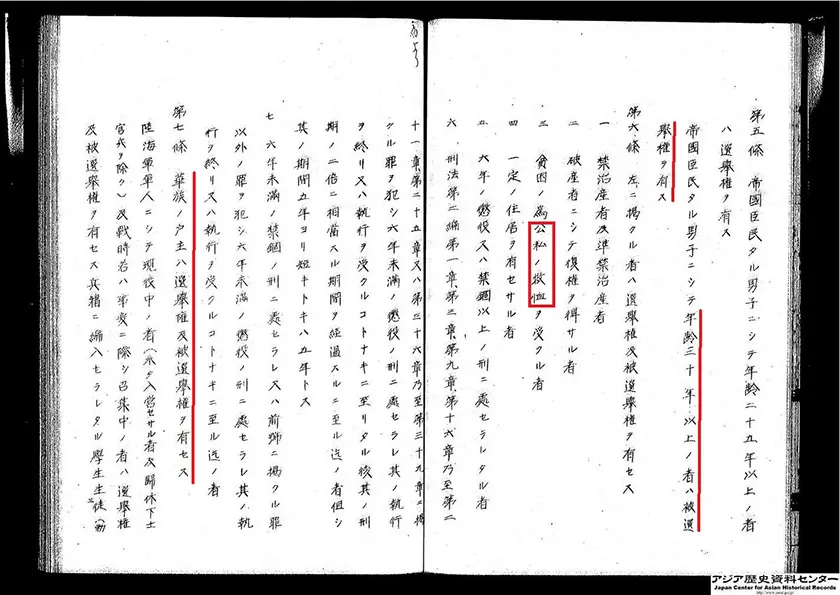 第五條 帝國臣民タル男子ニシテ年齢二十五年以上ノ者
ハ選擧權ヲ有ス
帝國臣民タル男子ニシテ年齢三十年以上ノ者ハ被選
擧權ヲ有ス
第六條 左ニ揭クル者ハ選擧權及被選擧權ヲ有セス
一 禁治産者及準禁治産者
二 破産者ニシテ復權ヲ得サル者
三 貧困ノ為公私ノ救恤ヲ受クル者
四 一定ノ住居ヲ有セサル者
五 六年ノ懲役又ハ禁錮以上ノ刑ニ處セラレタル者
六 刑法第二編第一章第三章第九章第十六章乃至第二
十一章第二十五章又ハ第三十六章乃至第三十九章ニ揭
クル罪ヲ犯シ六年未滿ノ懲役ノ刑ニ處セラレ其ノ執行
ヲ終リ又ハ執行ヲ受クルコトナキニ至リタル後其ノ刑
期ノ二倍ニ相當スル期間ヲ經過スルニ至ル迄ノ者但シ
其ノ期間五年ヨリ短キトキハ五年トス
七 六年未滿ノ禁錮ノ刑ニ處セラレ又ハ前號ニ揭クル罪
以外ノ罪ヲ犯シ六年未滿ノ懲役ノ刑ニ處セラレ其ノ執
行ヲ終リ又ハ執行ヲ受クルコトナキニ至ル迄ノ者
第七條 華族ノ戸主ハ選擧權及被選擧權ヲ有セス
陸海軍軍人ニシテ現役中ノ者(未タ入營セサル者及歸休下士
官兵ヲ除ク)及戰時若ハ事變ニ際シ召集中ノ者ハ選擧權
及被選擧權ヲ有セス兵籍ニ編入セラレタル學生生徒(勅
アジア歴史資料センター
Japan Center for Asian Historical Records
http://www.jacar.go.jp/